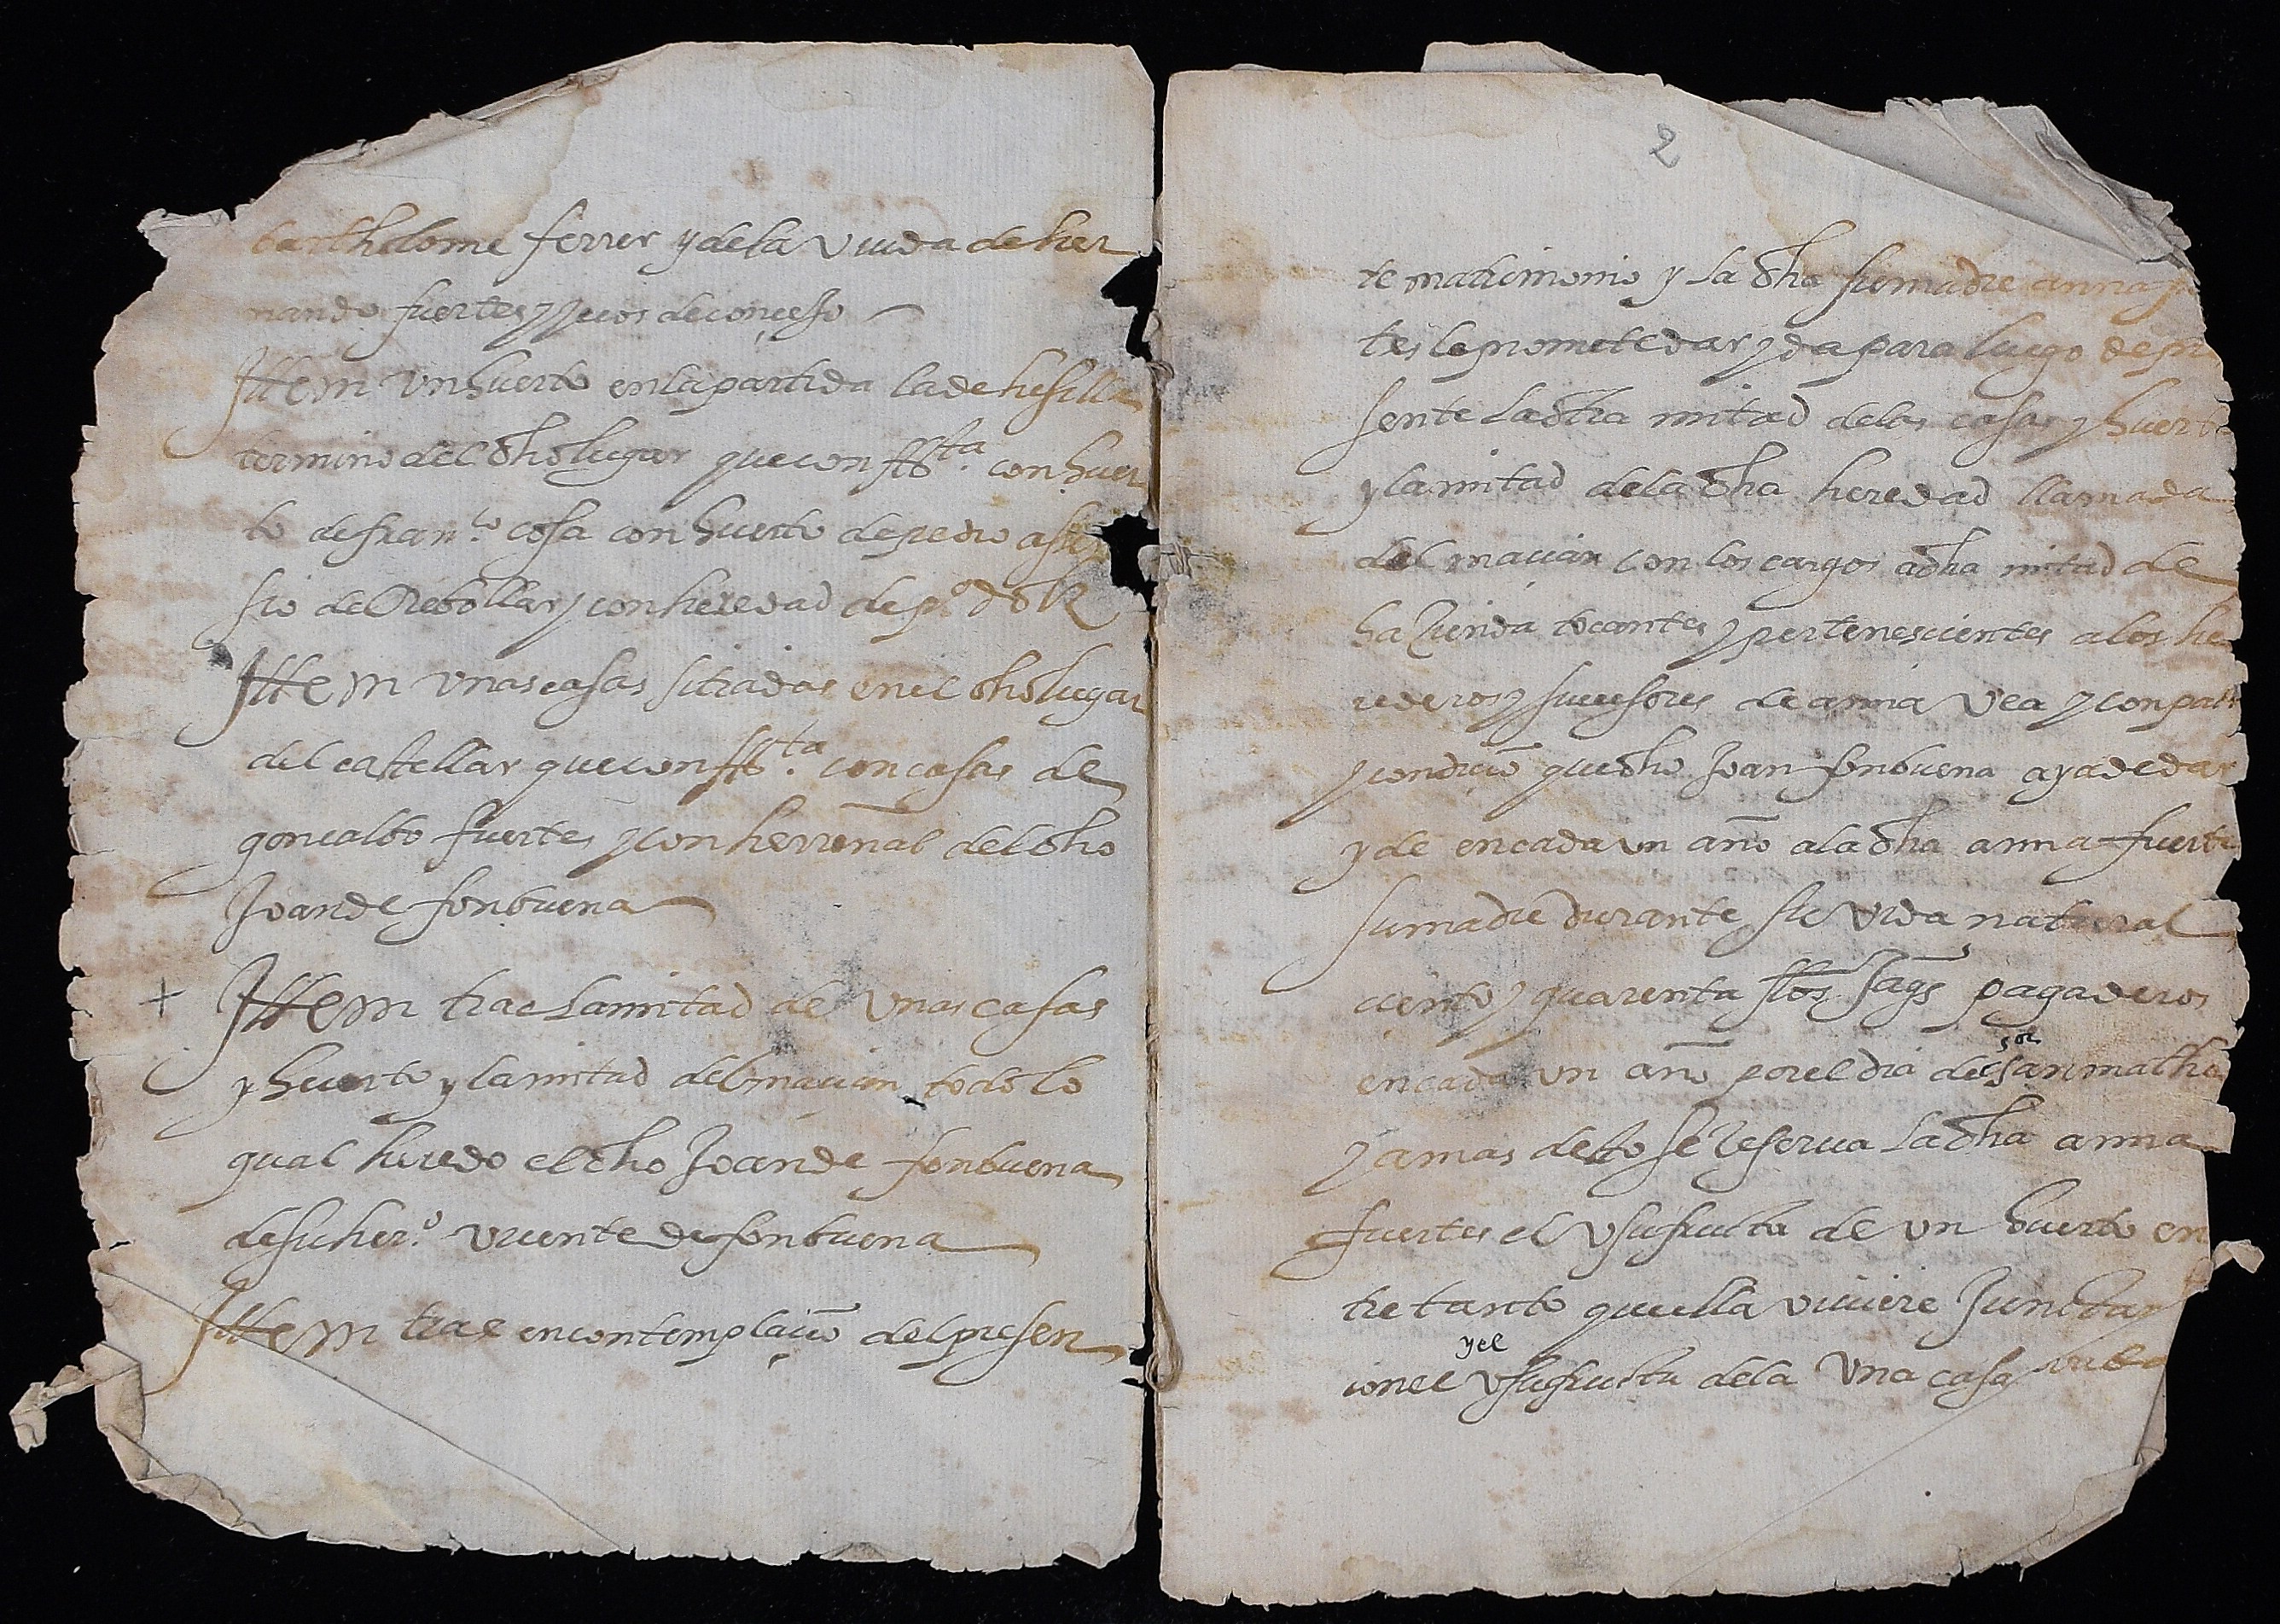 bartholome ferrer y de la viuda de her
nando fuertes y yecos de concejo
Ittem un huerto en la partida la dehesilla
termino del dho lugar que confr.ta con huer
to de fran.co cosa con huerto de pedro
sio del Rebollar y con heredad de
Ittem unas casas sitiadas en el dho lugar
del castellar que confr.ta con casas de
goncalbo fuertes y con herrenal del dho
Joan de fonbuena
+ Ittem trae la mitad de unas casas
y huerto y la mitad del macian todo lo
qual heredo el dho Joan de fonbuena
de su her.o vicente de fonbuena
Ittem trae en contemplacio del presen
2
te matrimonio y la dha su madre anna
tes le promete dar y da para luego de pre
sente la otra mitad de las casas y huerto
y la mitad de la dha heredad llamada
del macian con los cargos a dha mitad de
hazienda tocantes y pertenescientes a los he
rederos y sucesores de anna vea y con pacto
y condicio que dho Joan fonbuena aya de dar
y de en cada un año a la dha anna fuertes
su madre durante su vida natural
ciento y quarenta ss Jaqs pagaderos
en cada un año por el dia de sor san matheo
y a mas desto se reserva la dha anna
fuertes el usufructo de un huerto en
tre tanto que ella viviere Juncta
con el y el usufructu de la una casa